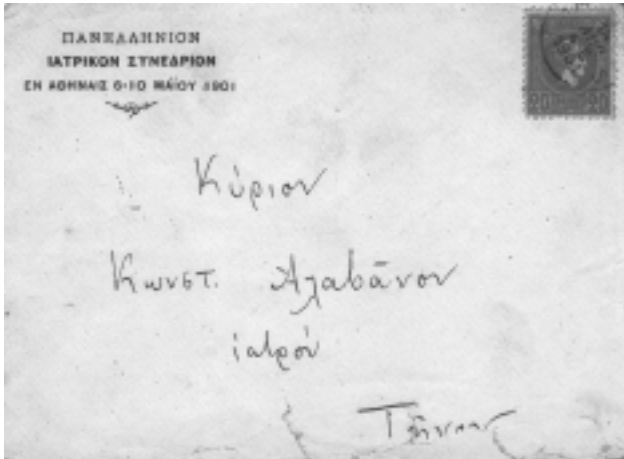 ΠΑΝΕΛΛΗΝΙΟΝ
ΙΑΤΡΙΚΟΝ ΣΥΝΕΔΡΙΟΝ
ΕΝ ΑΘΗΝΑΙΣ 6-10 ΜΑΪΟΥ 1901
20 20
Κύριον
Κωνστ. Αλαβᾶνον
ἰατρόν